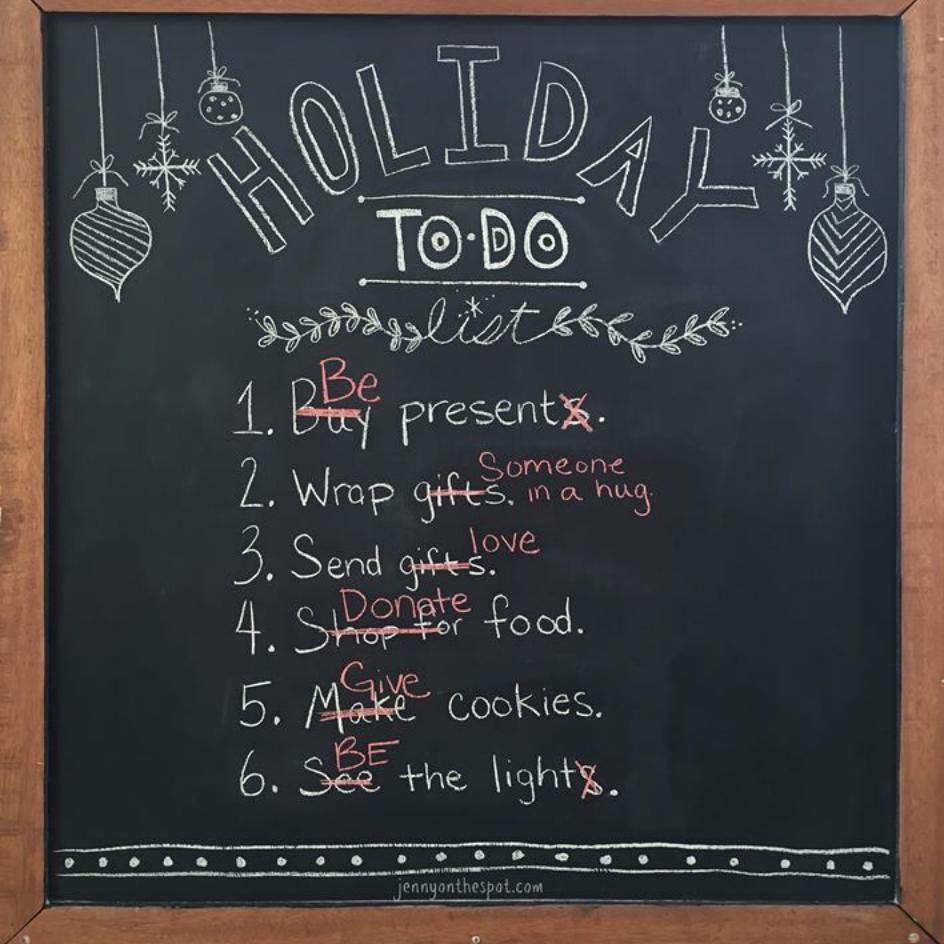 HOLIDAY
TO·DO
list
Be
1. Buy presents.
Someone
2. Wrap gifts. in a hug.
love
3. Send gifts.
Donate
4. Shop for food.
Give
5. Make cookies.
BE
6. See the lights.
jennyonthespot.com